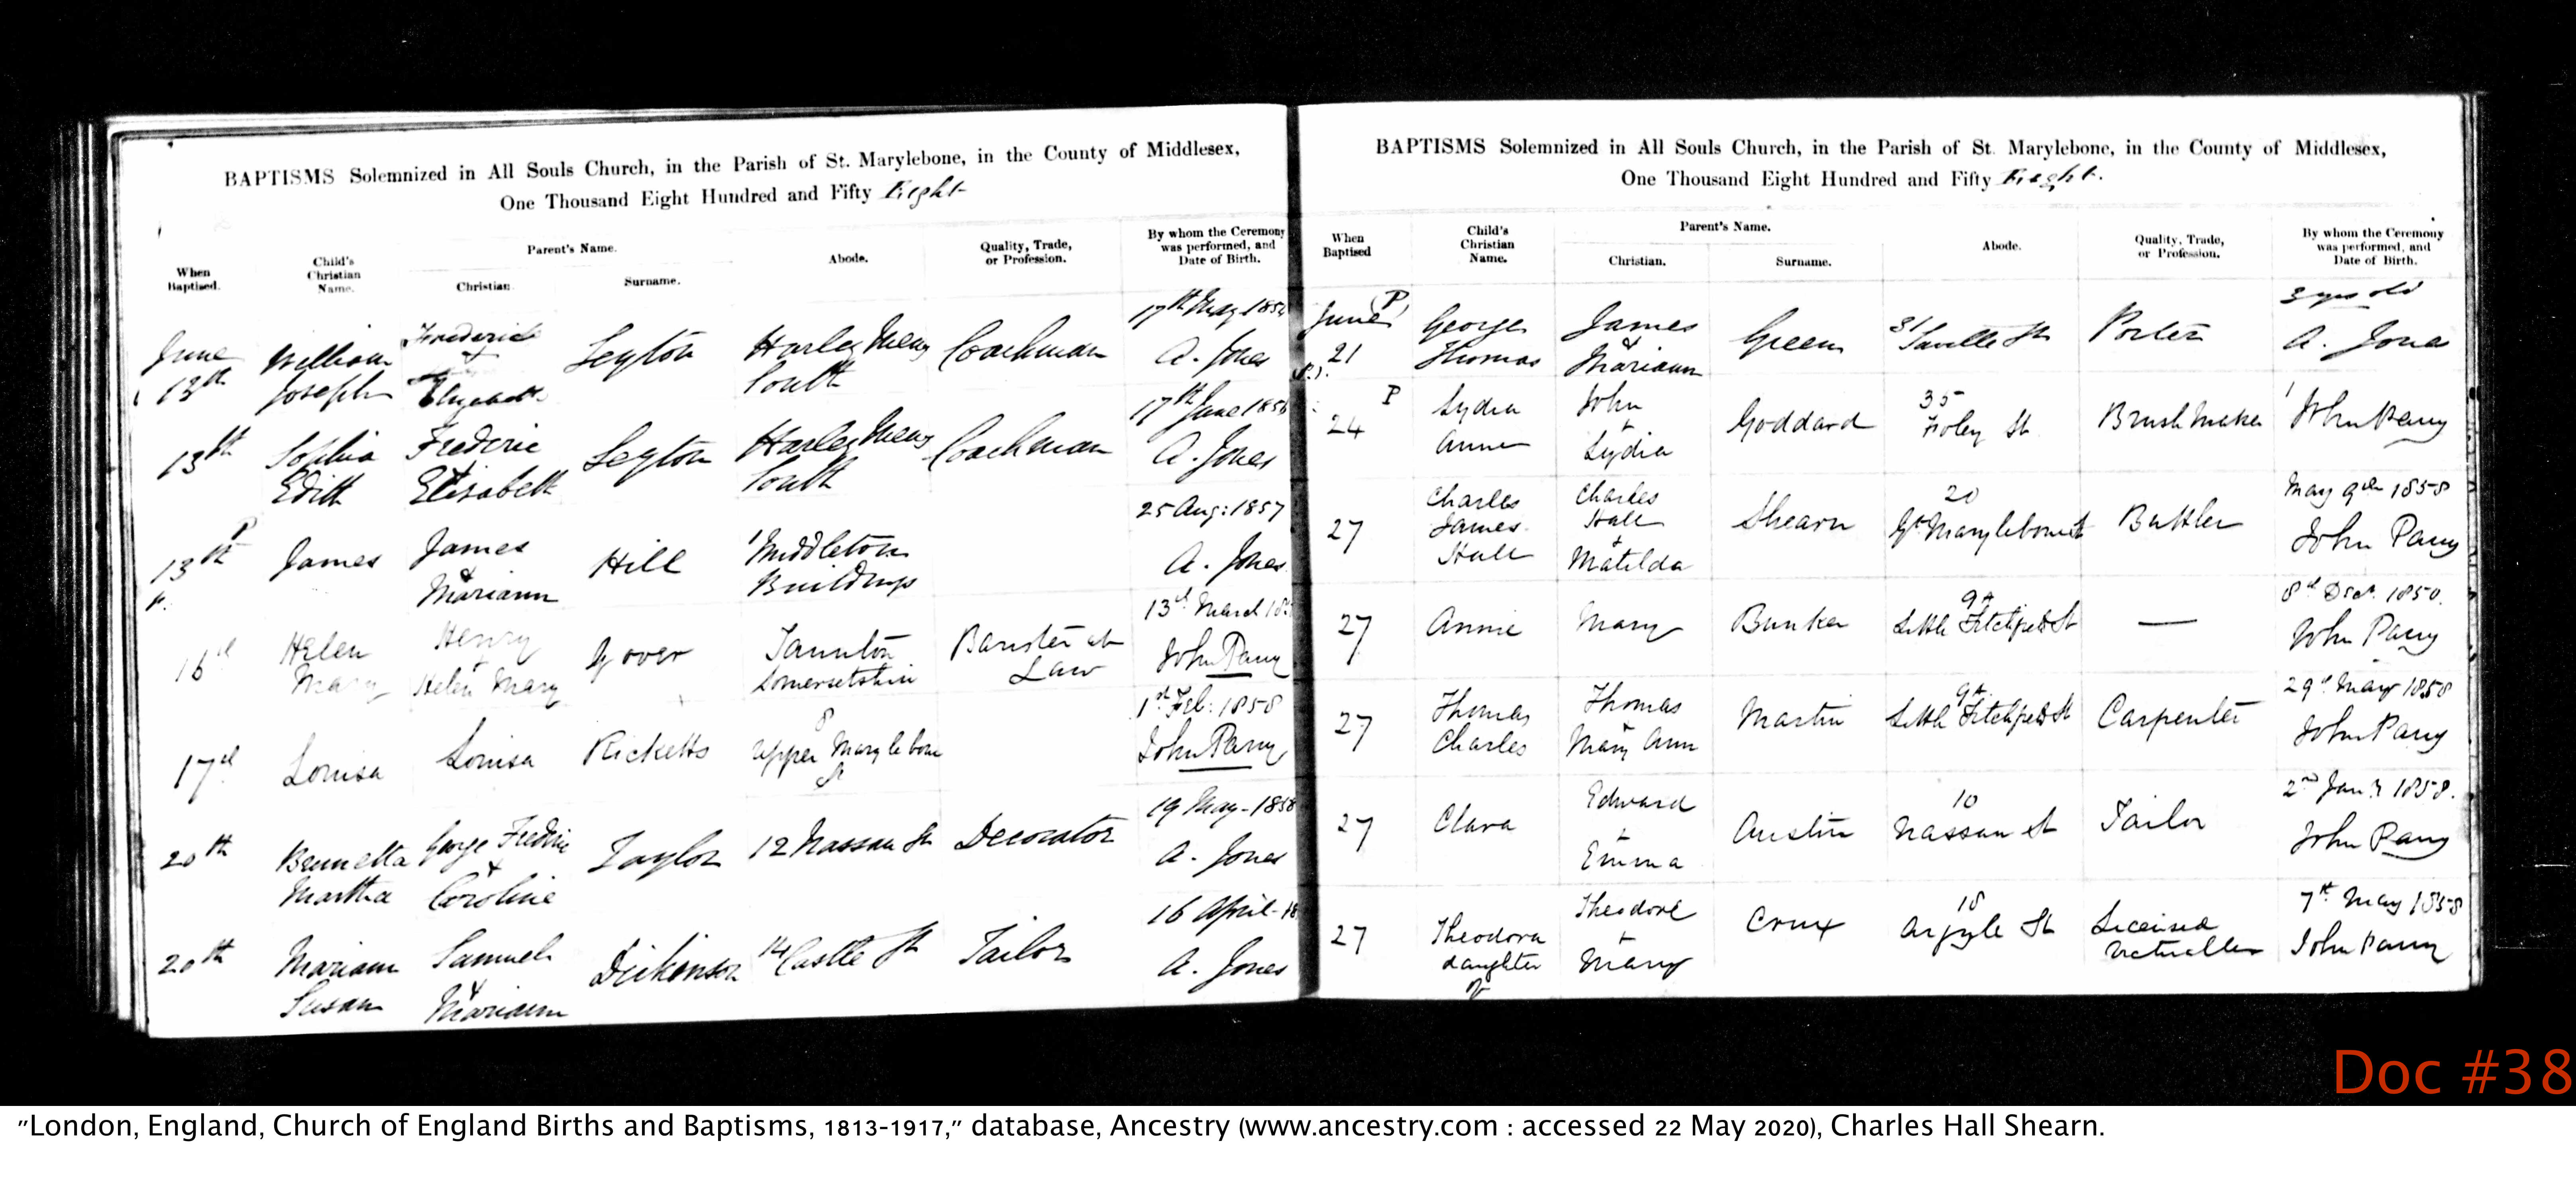 BAPTISMS Solemnized in All Souls Church, in the Parish of St. Marylebone, in the County of Middlesex,
One Thousand Eight Hundred and Fifty Eight
When Baptised.
Child's Christian Name.
Parent's Name.
Christian.
Surname.
Abode.
Quality, Trade, or Profession.
By whom the Ceremony was performed, and Date of Birth.
17th May 185
June 13th William Joseph Frederick + Elizabeth Leyton Harley Mews South Coachman A. Jones
17th June 185
13th Sophia Edith Frederic Elisabeth Leyton Harley Mews South Coachman A. Jones
25 Aug: 1857
P
13th James James & Mariann Hill 1 Middleton Buildings A. Jones
13th March 18
16th Helen Mary Henry + Helen Mary Gover Taunton Somersetshire Barister at Law John Parry
1st Feb: 1858
17th Louisa Louisa Ricketts 8 Upper Marylebone St John Parry
19 May - 1858
20th Bennetta Martha George Frederic + Caroline Taylor 12 Nassau St Decorator A. Jones
16 April - 18
20th Mariann Susan Samuel & Mariann Dickenson 14 Castle St Tailor A. Jones
BAPTISMS Solemnized in All Souls Church, in the Parish of St. Marylebone, in the County of Middlesex,
One Thousand Eight Hundred and Fifty Eight.
When Baptised
Child's Christian Name.
Parent's Name.
Christian.
Surname.
Abode.
Quality, Trade, or Profession.
By whom the Ceremony was performed, and Date of Birth.
3 yrs old
P
June 21 George Thomas James & Mariann Green 31 Saville St Porter A. Jones
P
24 Lydia Anne John + Lydia Goddard 35 Foley St Brush Maker John Parry
May 9th 1858
27 Charles James Hall Charles Hall + Matilda Shearn 20 Gt Marylebone St Buttler John Parry
8th Decr. 1850.
27 Annie Mary Bunker 9A Little Titchfield St — John Parry
29th May 1858
27 Thomas Charles Thomas + Mary Ann Martin 9A Little Titchfield St Carpenter John Parry
2nd Jany 1858.
27 Clara Edward + Emma Austin 10 Nassau St Tailor John Parry
7th May 1858
27 Theodora daughter of Theodore + Mary Crux 18 Argyle St Licensed Victualler John Parry
Doc #38
"London, England, Church of England Births and Baptisms, 1813-1917," database, Ancestry (www.ancestry.com : accessed 22 May 2020), Charles Hall Shearn.